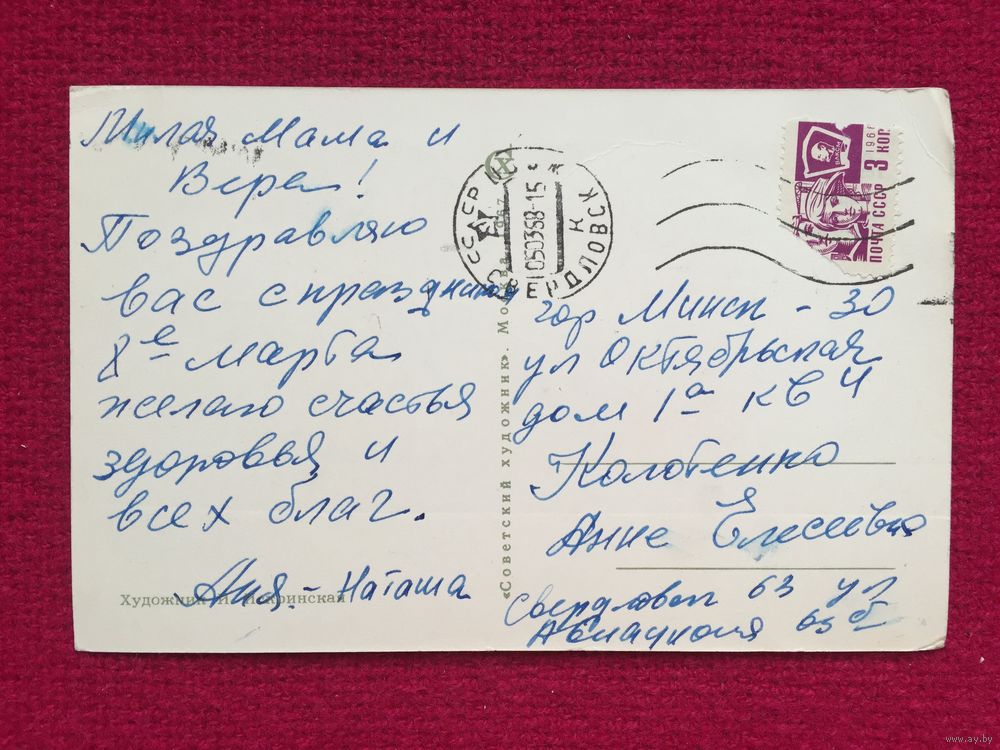 Милая Мама и
Вера!
Поздравляю
вас с праздником
8е марта
желаю счастья
здоровья и
всех благ.
Аня - Наташа
Художник И. Искринская
«Советский художник». Москва 1967
СССР
СВЕРДЛОВСК
050368-15
1966
3 КОП
ПОЧТА СССР
гор Минск - 30
ул Октябрьская
дом 1а кв 4
Колотенко
Анне Елисеевне
Свердловск 63 ул
65 б
www.ay.by